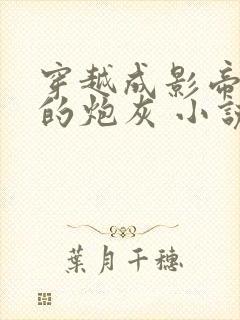 穿越成影帝
的炮灰 小說
葉月千穗